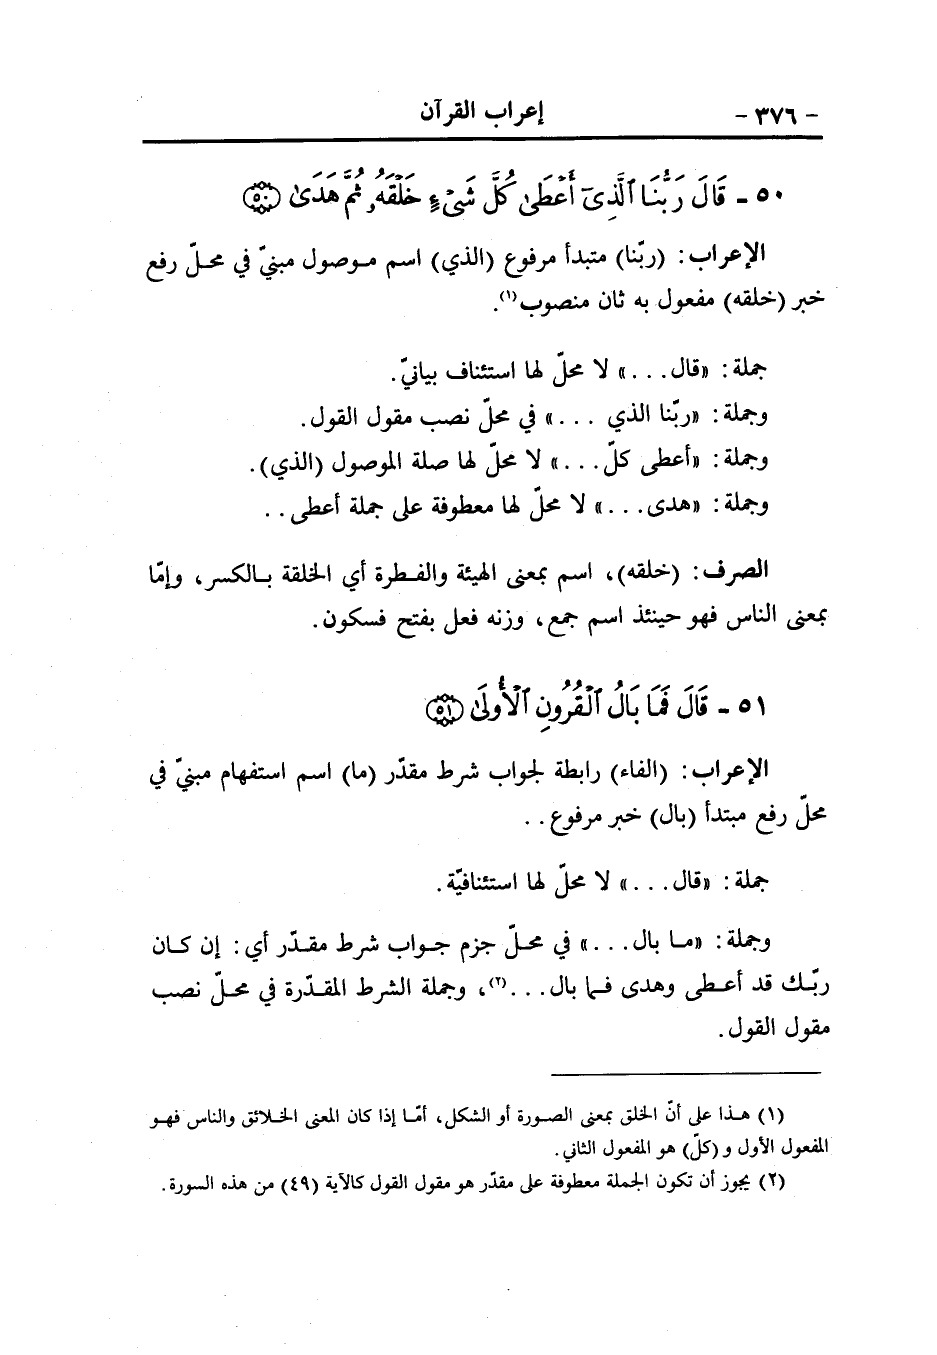 - ٣٧٦ - إعراب القرآن
٥٠ - قَالَ رَبُّنَا ٱلَّذِىٓ أَعْطَىٰ كُلَّ شَىْءٍ خَلْقَهُۥ ثُمَّ هَدَىٰ ﴿٥٠﴾
الإعراب: (ربّنا) متبدأ مرفوع (الذي) اسم موصول مبنيّ في محلّ رفع
خبر (خلقه) مفعول به ثان منصوب(١).
جملة: «قال...» لا محلّ لها استئناف بيانيّ.
وجملة: «ربّنا الذي ...» في محلّ نصب مقول القول.
وجملة: «أعطى كلّ...» لا محلّ لها صلة الموصول (الذي).
وجملة: «هدى...» لا محلّ لها معطوفة على جملة أعطى..
الصرف: (خلقه)، اسم بمعنى الهيئة والفطرة أي الخلقة بالكسر، وإمّا
بمعنى الناس فهو حينئذ اسم جمع، وزنه فعل بفتح فسكون.
٥١ - قَالَ فَمَا بَالُ ٱلْقُرُونِ ٱلْأُولَىٰ ﴿٥١﴾
الإعراب: (الفاء) رابطة لجواب شرط مقدّر (ما) اسم استفهام مبنيّ في
محلّ رفع مبتدأ (بال) خبر مرفوع..
جملة: «قال...» لا محلّ لها استئنافيّة.
وجملة: «ما بال...» في محلّ جزم جواب شرط مقدّر أي: إن كان
ربّك قد أعطى وهدى فما بال...(٢)، وجملة الشرط المقدّرة في محلّ نصب
مقول القول.
(١) هذا على أنّ الخلق بمعنى الصورة أو الشكل، أمّا إذا كان المعنى الخلائق والناس فهو
المفعول الأول و (كلّ) هو المفعول الثاني.
(٢) يجوز أن تكون الجملة معطوفة على مقدّر هو مقول القول كالآية (٤٩) من هذه السورة.